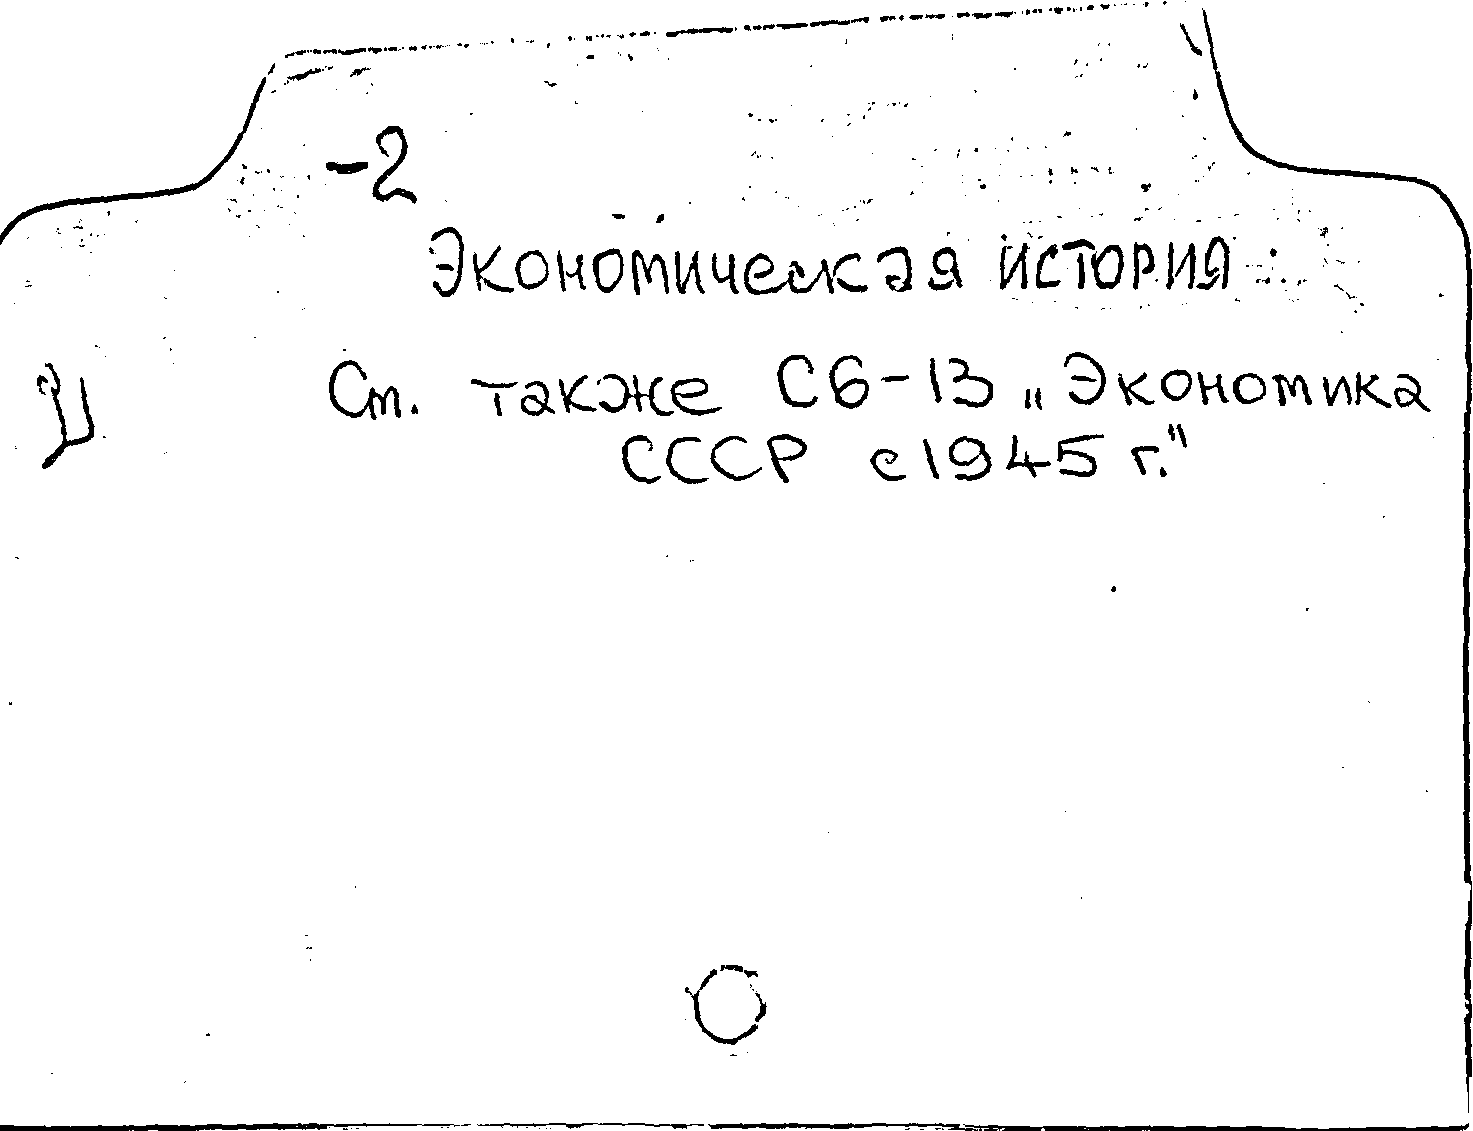 -2
Экономическая история
См. также С6-13 „Экономика
СССР с 1945 г."